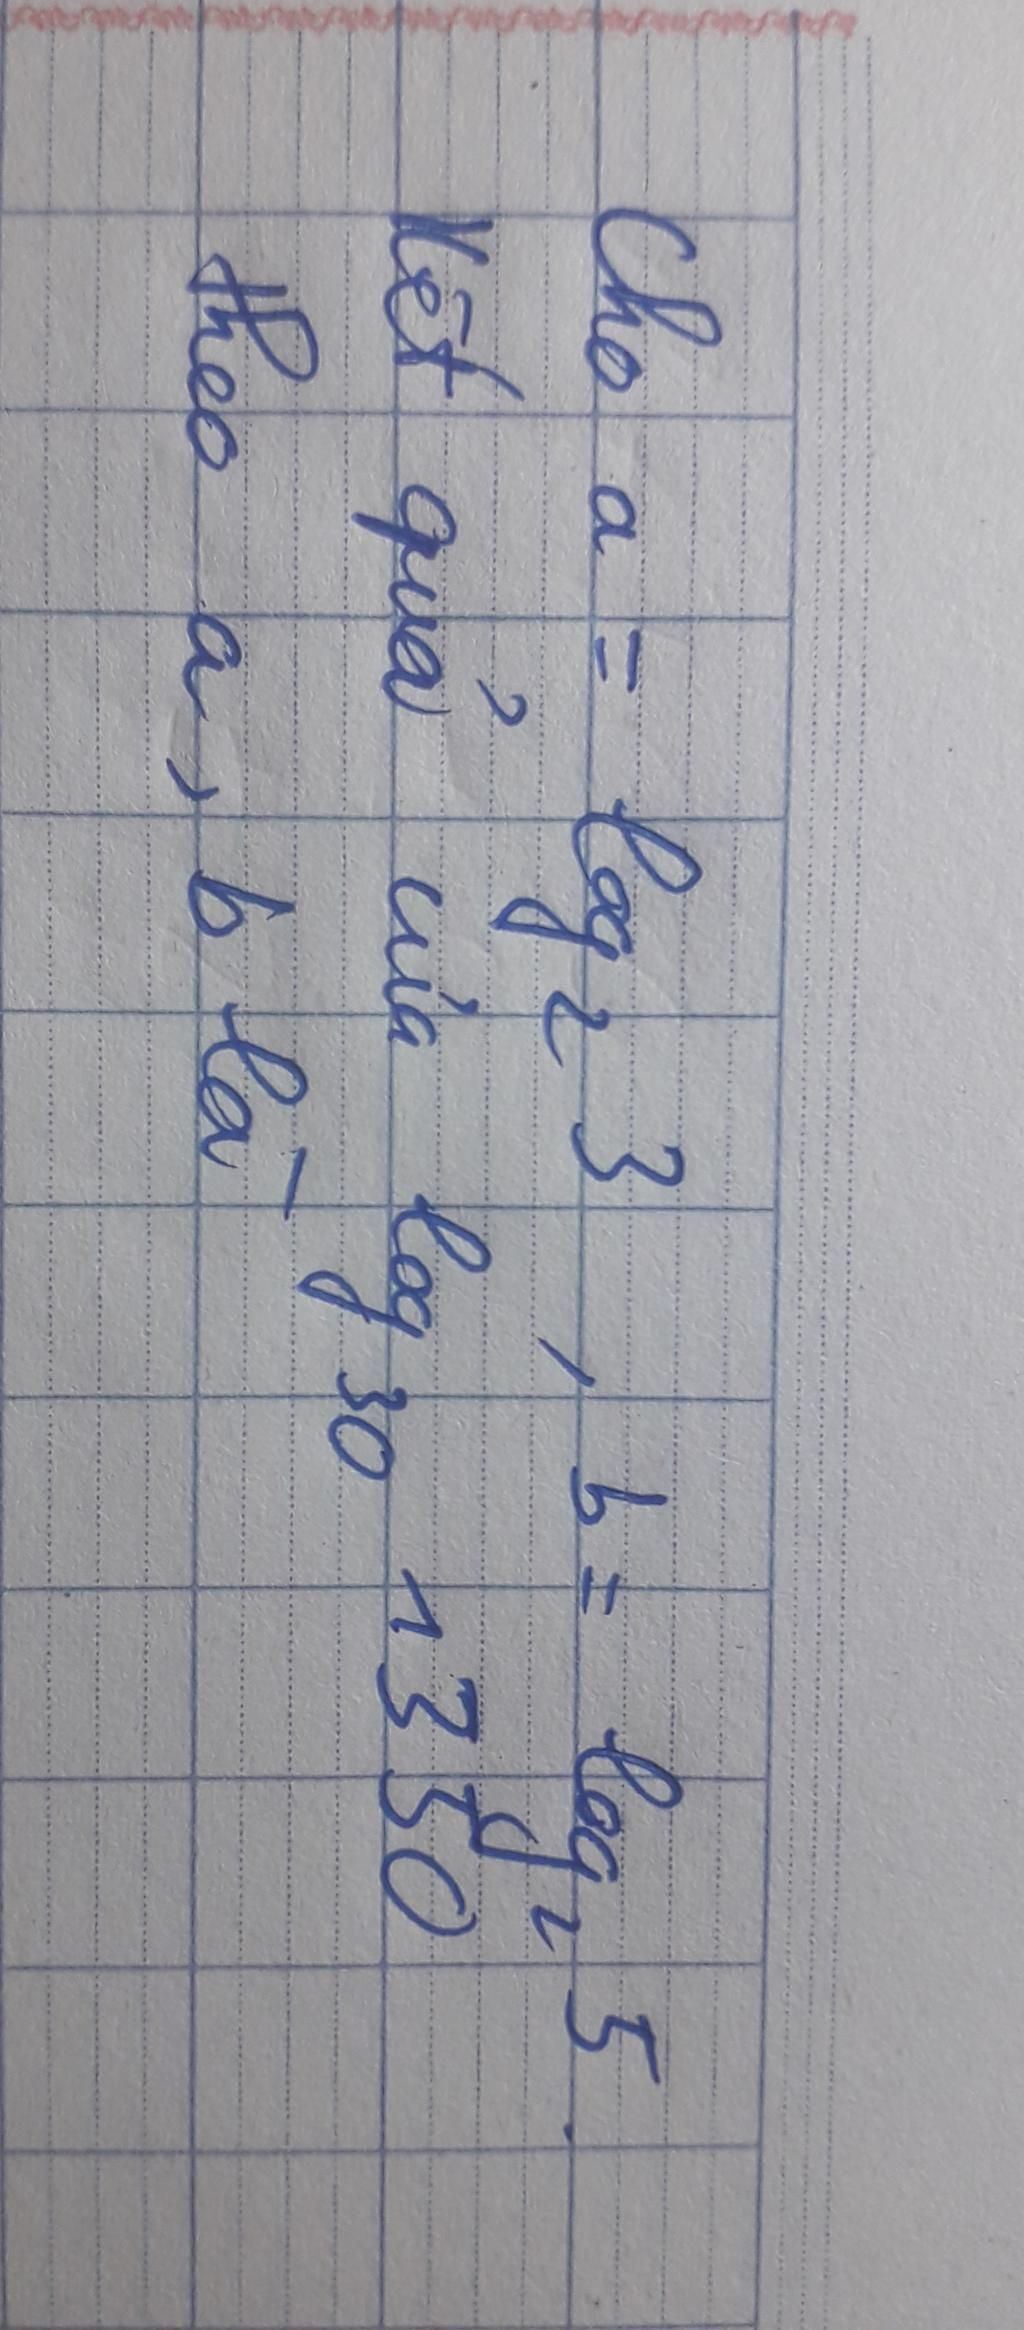 Cho a = log₂ 3 , b = log₂ 5.
Kết quả của log₃₀ 1350
theo a, b là